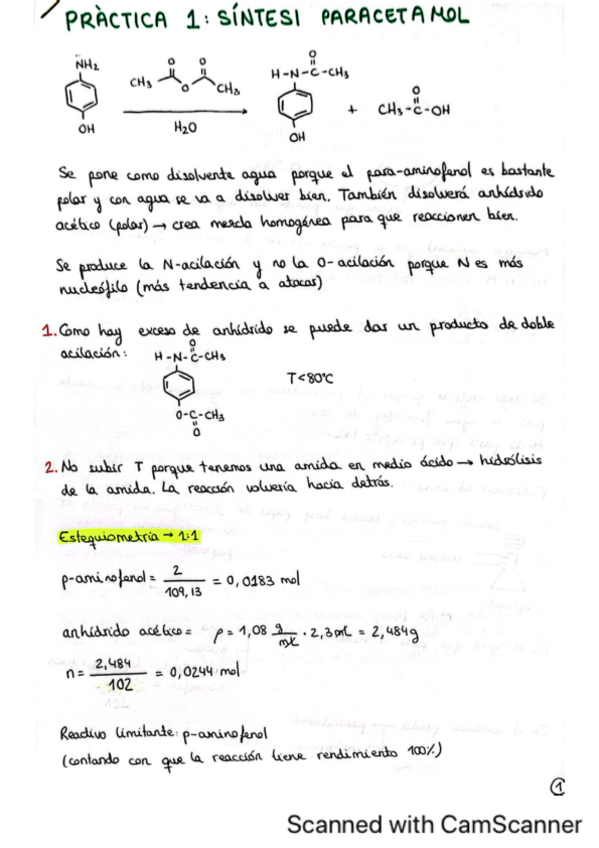 PRÀCTICA 1: SÍNTESI PARACETAMOL
NH2
CH3 O O O CH3
H2O
OH
H-N-C-CH3
O
OH
+ CH3-C-OH
O
Se pone como disolvente agua porque el para-aminofenol es bastante
polar y con agua se va a disolver bien. También disolverá anhídrido
acético (polar) → crea mezcla homogénea para que reaccionen bien.
Se produce la N-acilación y no la O-acilación porque N es más
nucleófilo (más tendencia a atacar)
1. Como hay exceso de anhídrido se puede dar un producto de doble
acilación:
O
H-N-C-CH3
T<80ºC
O-C-CH3
O
2. No subir T porque tenemos una amida en medio ácido → hidrólisis
de la amida. La reacción volvería hacia detrás.
Estequiometría → 1:1
p-aminofenol = 2 / 109,13 = 0,0183 mol
anhídrido acético = ρ = 1,08 g/mL · 2,3mL = 2,484g
n = 2,484 / 102 = 0,0244 mol
Reactivo limitante: p-aminofenol
(contando con que la reacción tiene rendimiento 100%)
1
Scanned with CamScanner